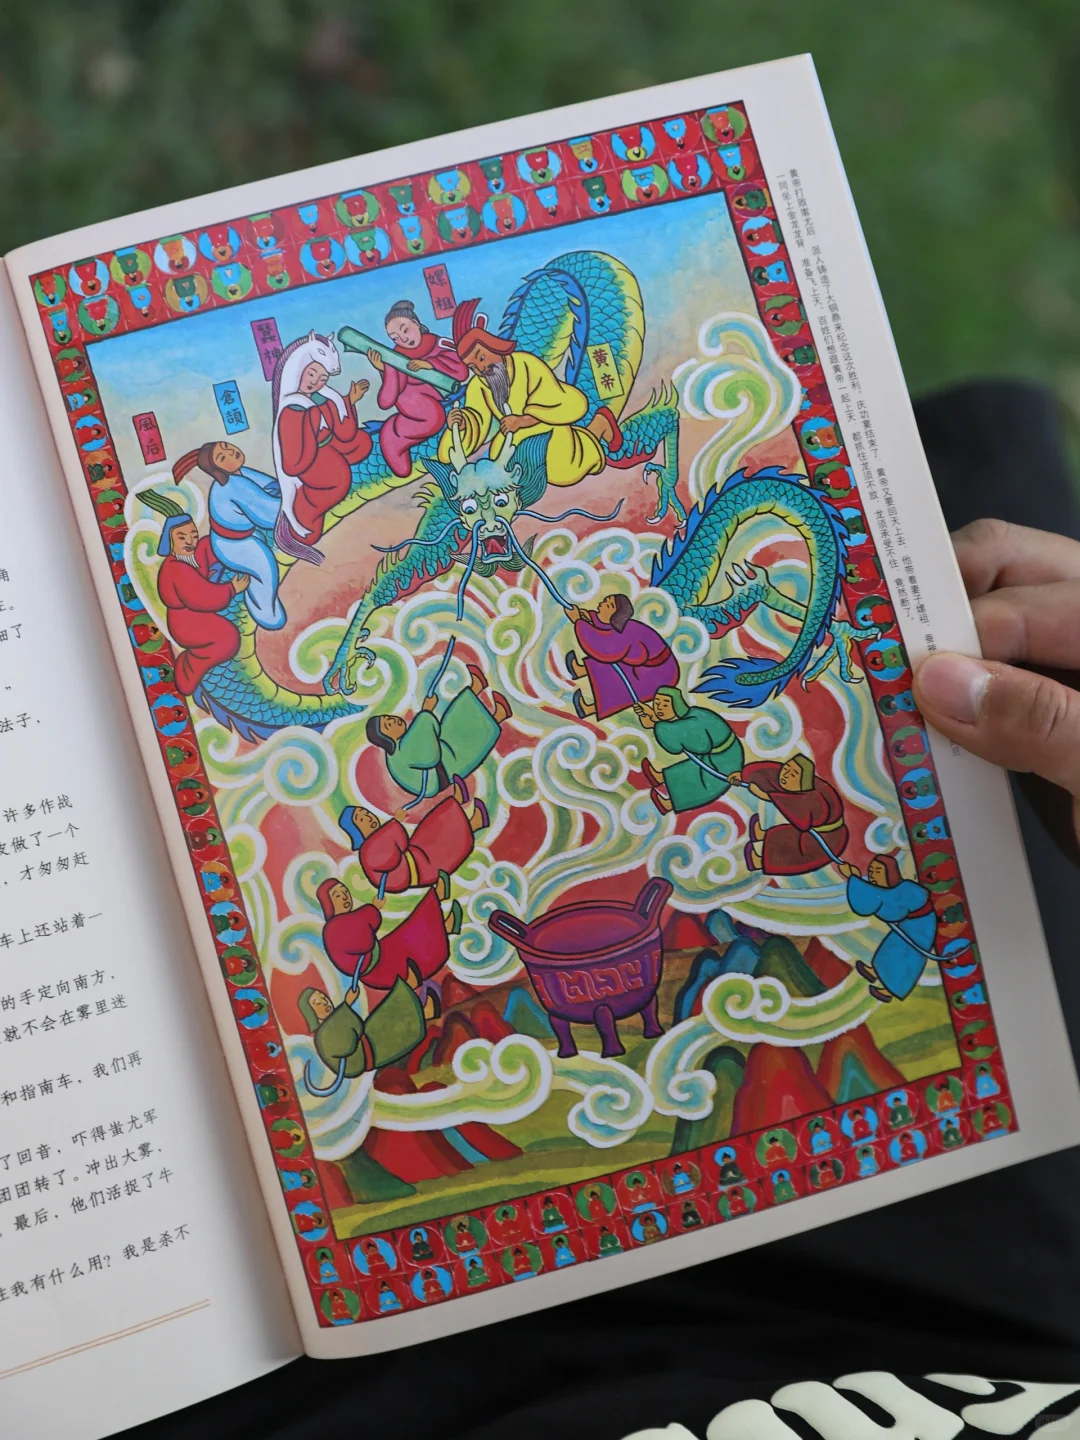 角
三。
细了
”
法子，
许多作战
皮做了一个
，才匆匆赶
车上还站着一
的手定向南方，
就不会在雾里迷
和指南车，我们再
了回音，吓得蚩尤军
团团转了。冲出大雾，
。最后，他们活捉了牛
住我有什么用？我是杀不
風后
倉頡
蠶神
嫘祖
黄帝
黄帝打败蚩尤后，派人铸造了大铜鼎来纪念这次胜利，庆功宴结束了，黄帝又要回天上去，他带着妻子嫘祖、蚕神
一同坐上金龙龙背，准备飞上天，百姓们想跟黄帝一起上天，都抓住龙须不放，龙须承受不住，竟然断了。